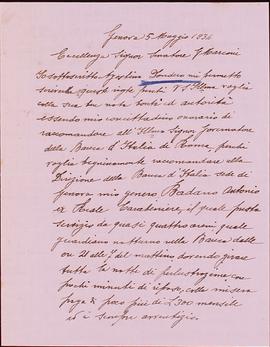 Genova 5 Maggio 1934
Eccellenza Signor Senatore G Marconi
Io sottoscritto Dondero mi permetto
scrivere queste righe V. S. Illma voglia
colla sua ben nota bontà ed autorità
essendo mio concittadino onorario di
raccomandare all'Illmo Signor Governatore
della Banca d'Italia di Roma, perché
voglia benignamente raccomandare alla
Direzione della Banca d'Italia sede di
Genova mio genero Badano Antonio
ex Reale Carabiniere, il quale presta
servizio da quasi quattro anni quale
guardiano notturno nella Banca dalle
ore 21 alle 7 del mattino dovendo girare
tutta la notte di perlustrazione, con
pochi minuti di riposo, colla misera
paga di poco più di £ 300 mensile
ed è sempre avventizio.